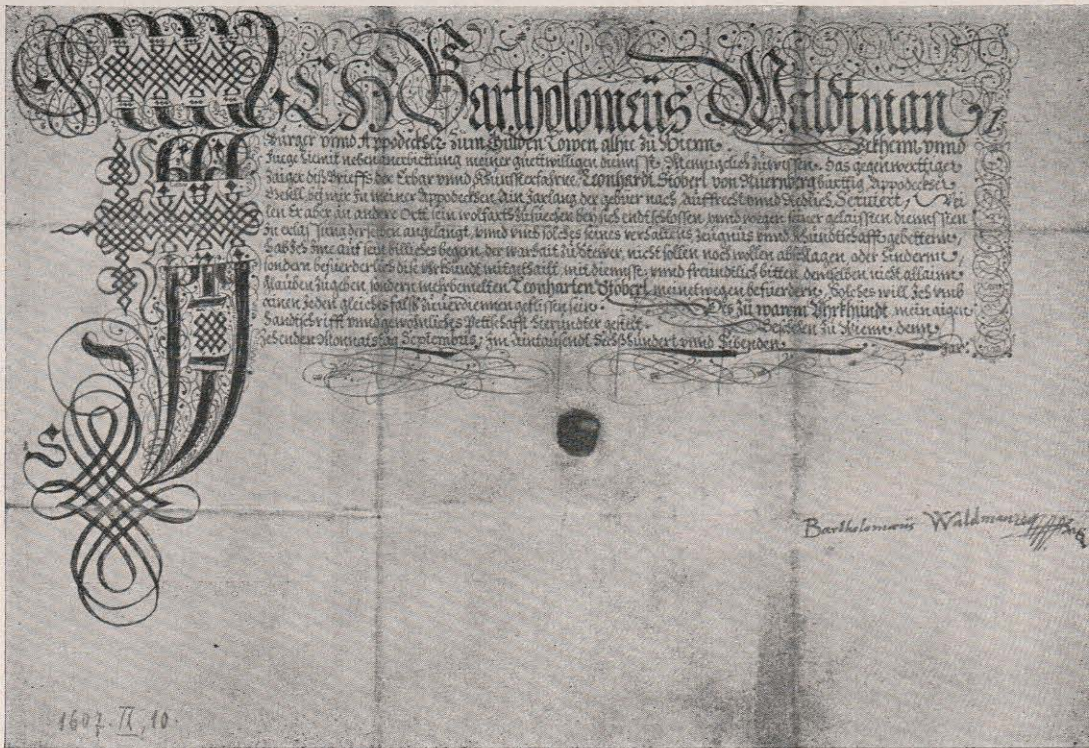 ICH Bartholomeüs Waldtman
Bürger vnnd Appodeckher zum Gulden Löwen alhie zu Wienn Bekhenn vnnd
Fuege hiemit neben anerbiettung meiner guettwilligen diennst Mennigclich zuwissen das gegenwerttiger
Zaiger diß Brieffs der Erbar vnnd Khunsterfahrne Leonhardt Stöberl von Nuernberg bürttig Appodeckher
Gesell bei mir in meiner Appodeckhen ain Jarlang der gebüer nach Auffrecht vnnd Redlich Seruiert Wei
len Er aber an andere Ortt sein wolfart zusuechen bei sich endtschlossen vnnd wegen seiner gelaissten diennsten
zu erlassung derselben angelangt, vnnd vmb solches seines verhaltens Zeugnus vnnd Khundtschafft gebettenn,
hab Ich ime auf sein billiches begern, der warhait zu Stewer nicht sollen noch wollen abschlagen oder hindernn,
sondern befuerderlich dise vrkhundt mitgethailt, mit diennst vnnd freundtlich bitten, demselben nicht allainn
glauben zugeben, sondern mehrbemelten Leonharten Stöberl meinetwegen befuerdern, Solches will Ich vmb
einen Jeden gleiches falls zuuerdiennen geflissen sein. Des zu warem Vrkhundt mein aigen
Handtschrifft vnnd gewohnliches Pettschafft hierundter gestelt. Beschehen zu Wienn denn
Zehenden Monnatstag Septembris, im Aintausendt Sechßhundert vnnd Sibenden Jar.
Bartholomeüs Waldman
1607. IX, 10.